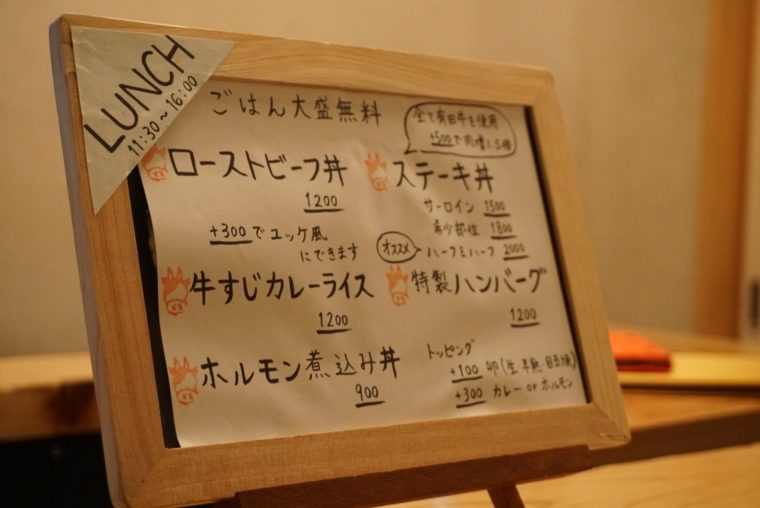 LUNCH
11:30~16:00
ごはん大盛無料
全て有田牛を使用
+500で肉増1.5倍
ローストビーフ丼
1200
+300でユッケ風
にできます
ステーキ丼
サーロイン 1500
希少部位 1800
オススメ
ハーフ&ハーフ 2000
牛すじカレーライス
1200
特製ハンバーグ
1200
ホルモン煮込み丼
900
トッピング
+100 卵(生・半熟・目玉焼)
+300 カレー or ホルモン